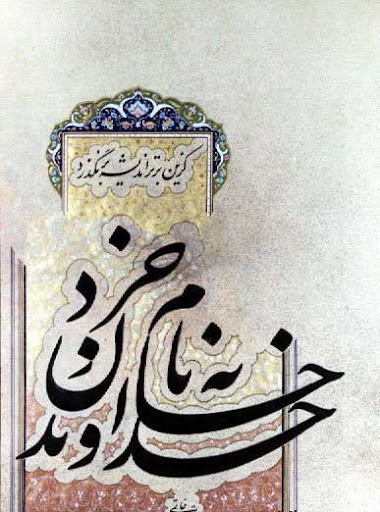 کزین برتر اندیشه برنگذرد
به نام خداوند جان و خرد